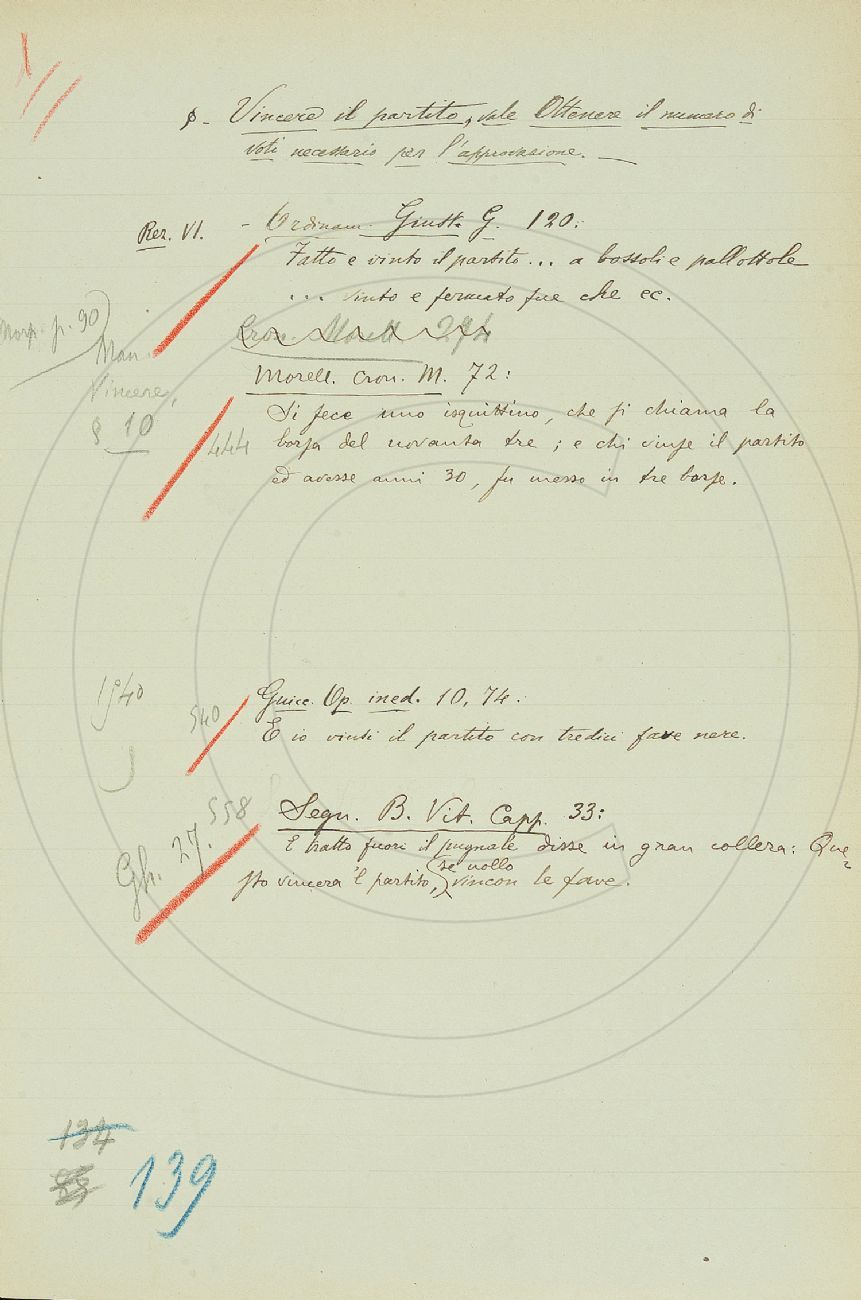 § - Vincere il partito, vale Ottenere il numero di
voti necessario per l'approvazione. —
Rez. VI. - Ordinam. Giust. G. 120:
Fatto e vinto il partito... a bossoli e pallottole
... vinto e fermato fue che ec.
Morp. p. 90
Cron. Morell 274
Man.
Vincere,
§ 10
Morell. Cron. M. 72:
444
Si fece uno isquittino, che si chiama la
borsa del novanta tre; e chi vinse il partito
ed avesse anni 30, fu messo in tre borse.
1540
540
Guicc. Op. ined. 10, 74:
E io vinsi il partito con tredici fave nere.
558
Gh. 27.
Segn. B. Vit. Capp. 33:
E tratto fuori il pugnale disse in gran collera: Que-
sto vincerà 'l partito, se nollo vincon le fave.
134
139